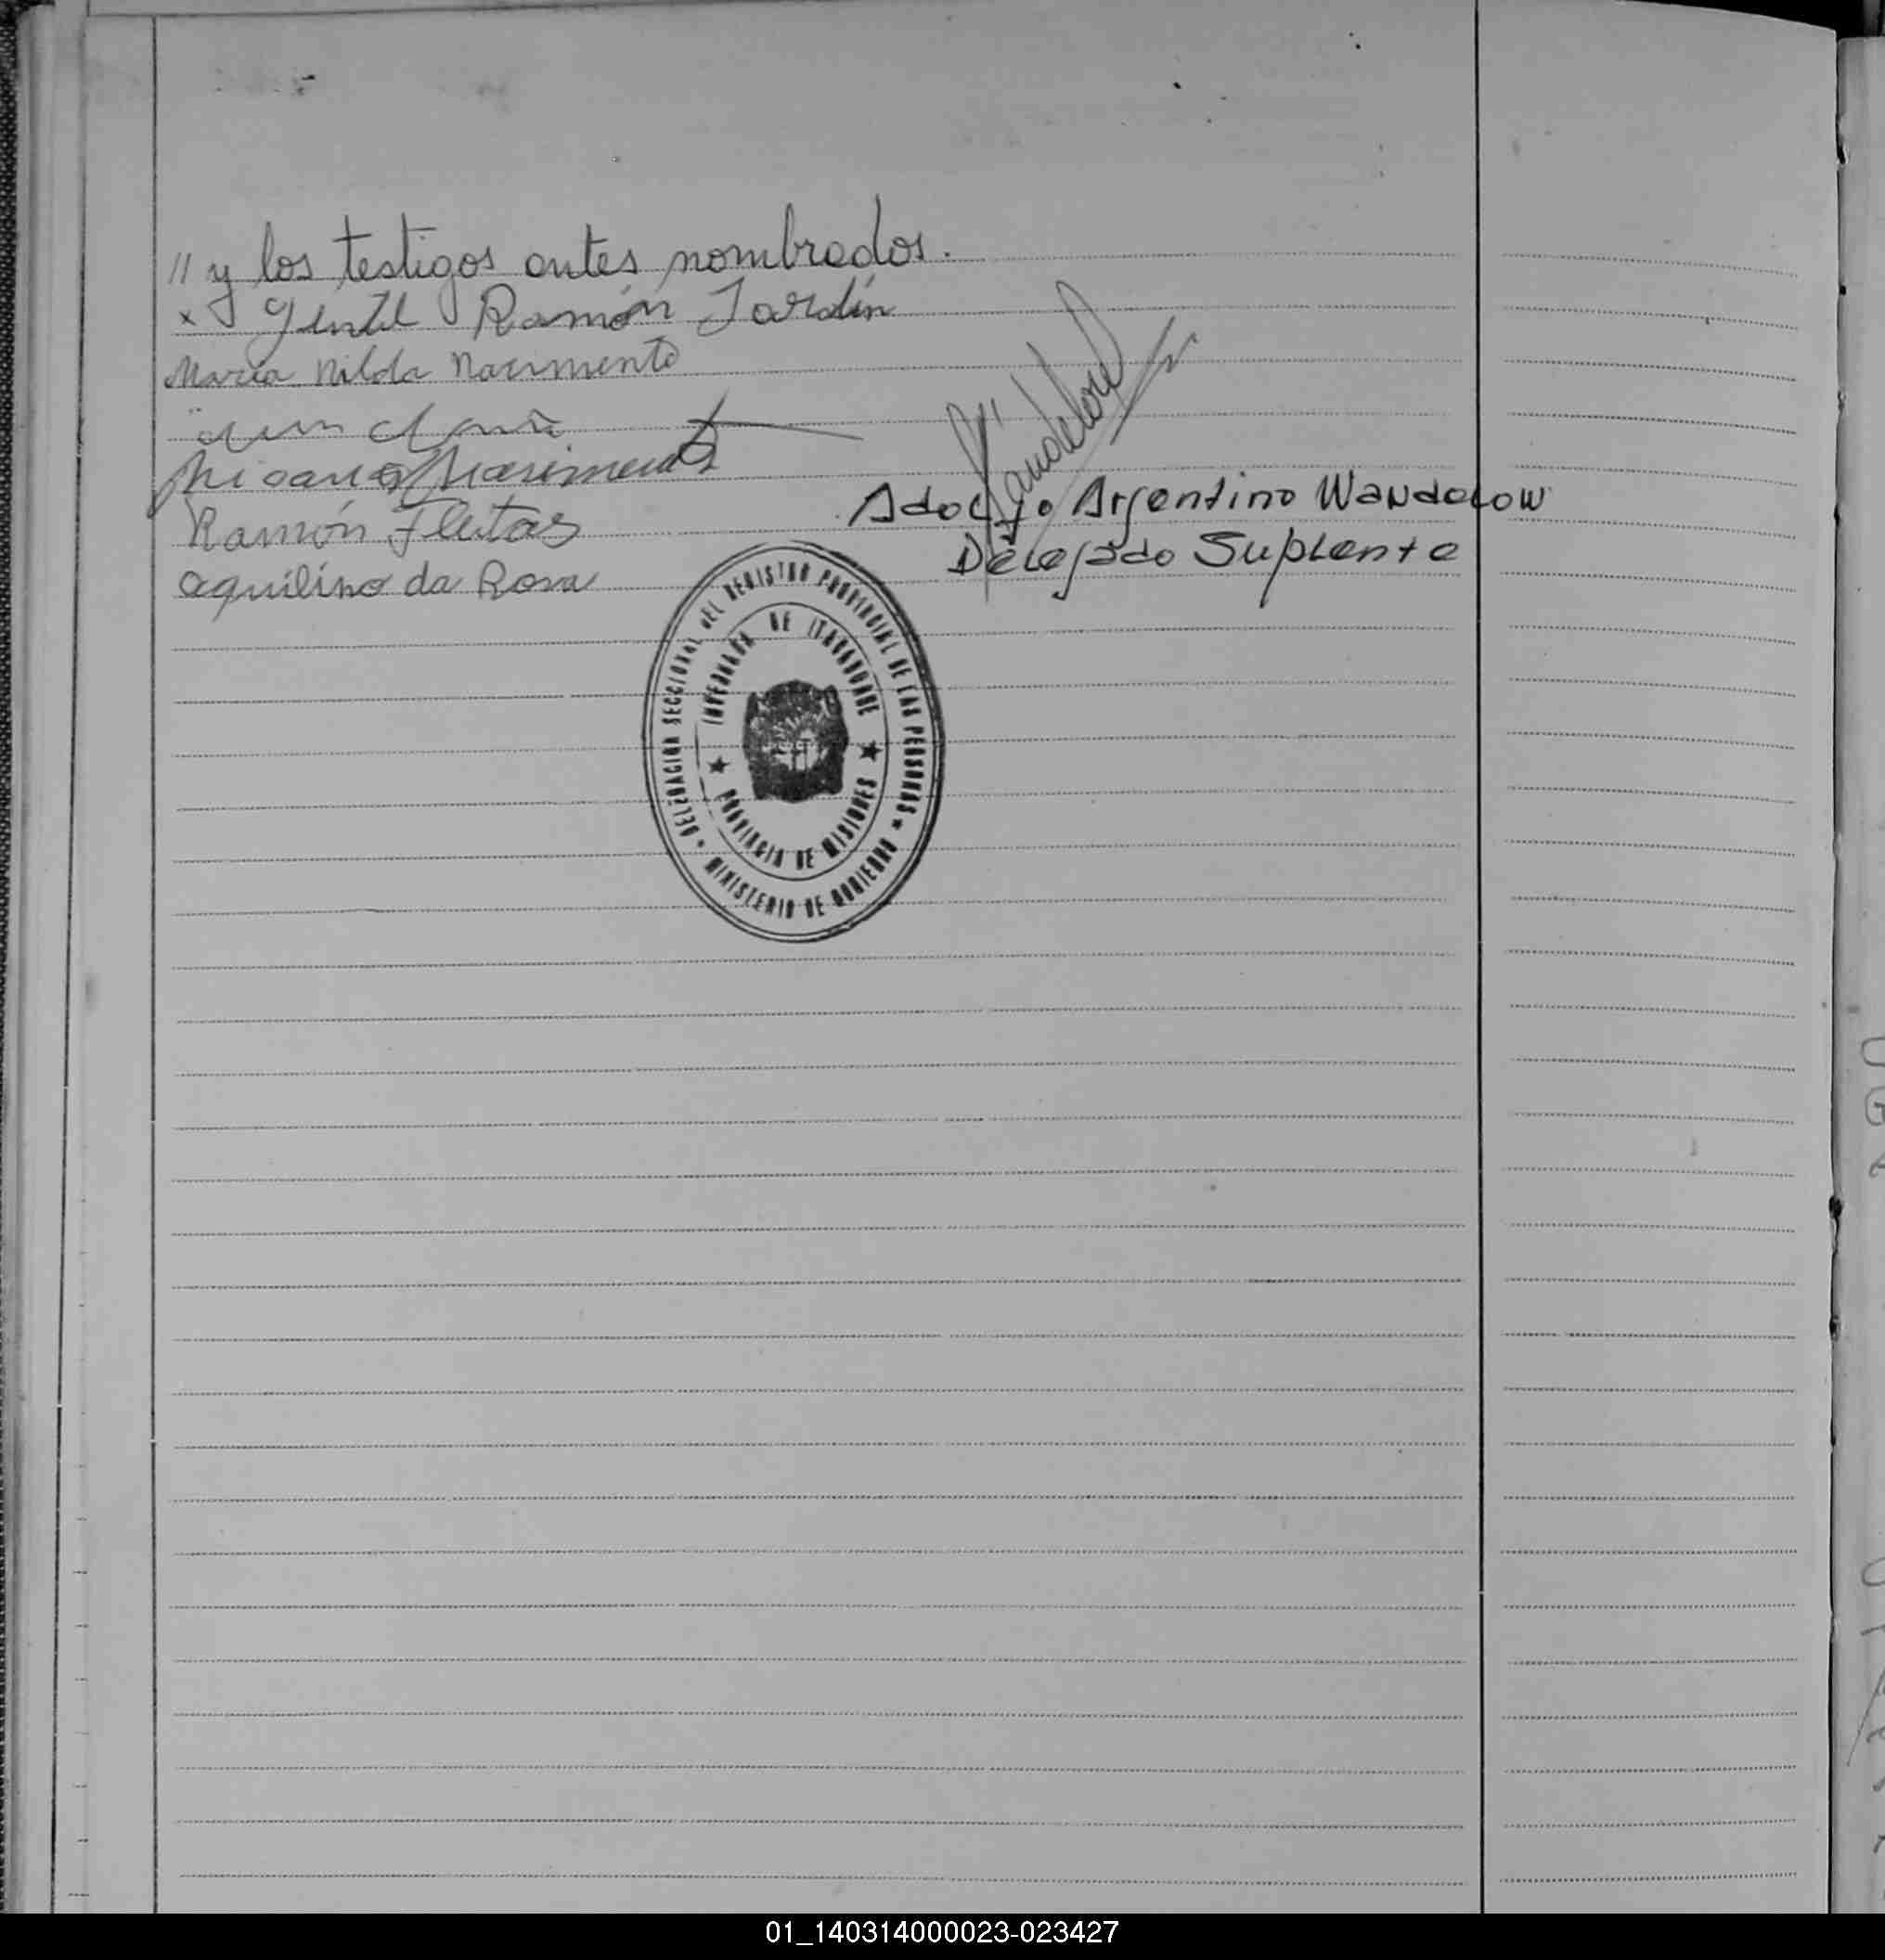 // y los testigos antes nombrados.
x Gentil Ramón Jardín
Maria Nilda Nacimento
Nacimento
Ramón Fleitas
Aquilino da Rosa
Adolfo Argentino Wandelow
Delegado Suplente
DELEGACION SECCIONAL DEL REGISTRO PROVINCIAL DE LAS PERSONAS
MINISTERIO DE GOBIERNO
DE ITACARUARE
PROVINCIA DE MISIONES
01_140314000023-023427